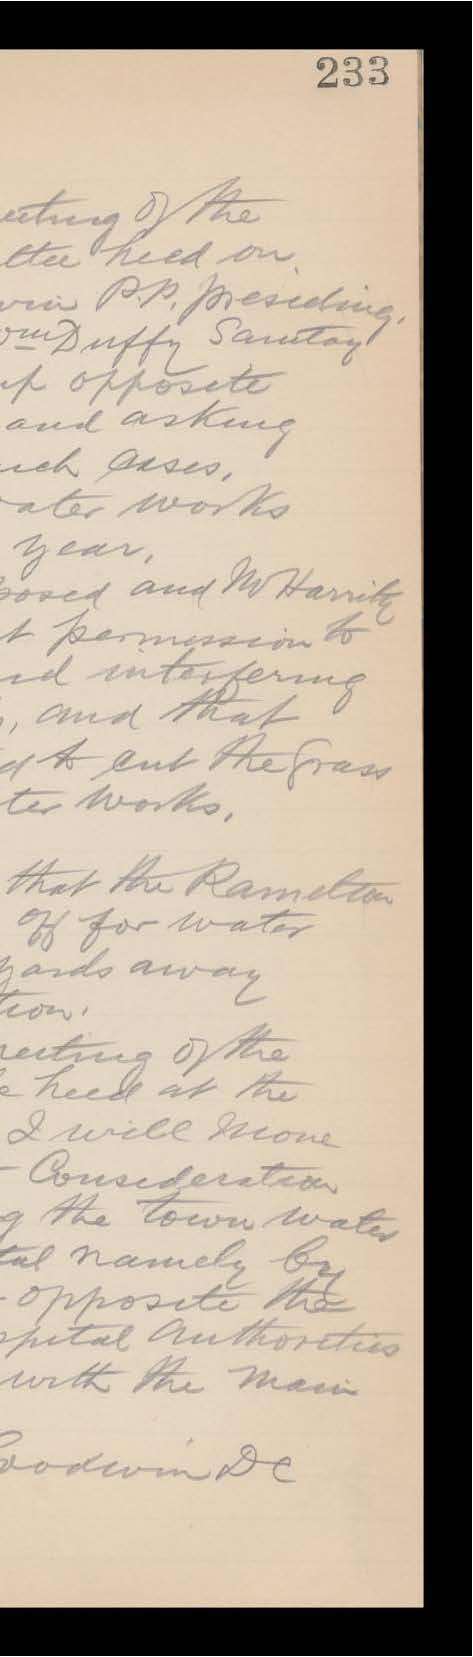 233
eeting of the
ittee held on
win P.P. presiding.
Wm Duffy Sanitary
up opposite
and asking
uch cases.
water works
year.
posed and McHarrity
t permission to
nd interfering
, and that
d to cut the grass
ter works.
that the Ramelton
off for water
yards away
tion.
eeting of the
e held at the
I will move
Consideration
g the town water
tal namely by
opposite the
spital authorities
with the main
Goodwin DC